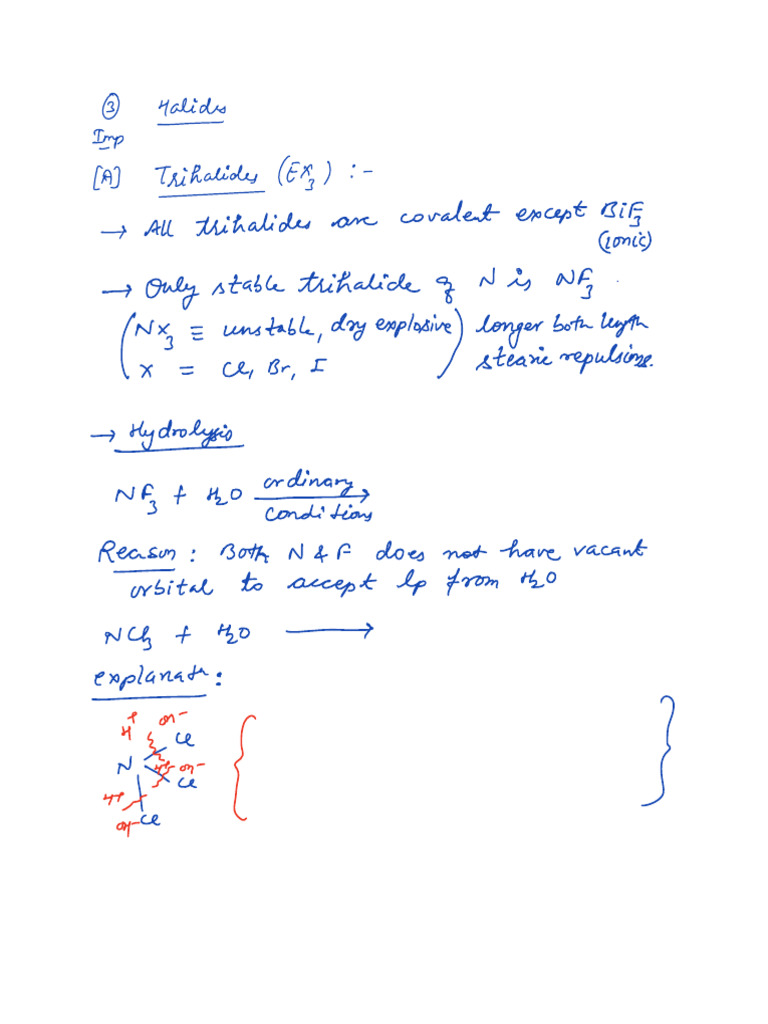 ③ Halides
Imp
[A] Trihalides (EX₃) :-
→ All trihalides are covalent except BiF₃
(ionic)
→ Only stable trihalide of N is NF₃.
(NX₃ ≡ unstable, dry explosive) longer both length
X = Cl, Br, I stearic repulsions.
→ Hydrolysis
NF₃ + H₂O ordinary conditions →
Reason : Both N & F does not have vacant
orbital to accept lp from H₂O
NCl₃ + H₂O →
explanatn :
H⁺ OH⁻
Cl
N H⁺ OH⁻
Cl
H⁺
OH⁻ Cl